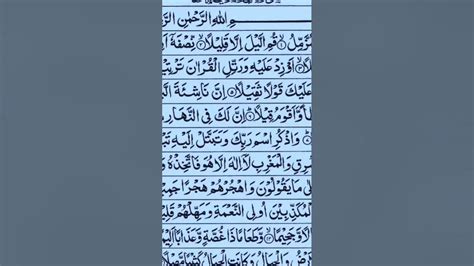 مِ اللهِ الرَّحْمٰنِ الرَّ
زَّمِّلُ ۙ قُمِ الَّيْلَ اِلَّا قَلِيْلًا ۙ نِّصْفَهٗۤ اَ
اَوْ زِدْ عَلَيْهِ وَرَتِّلِ الْقُرْاٰنَ تَرْتِيْ
عَلَيْكَ قَوْلًا ثَقِيْلًا ۝ اِنَّ نَاشِئَةَ الَّ
طْاً وَّاَقْوَمُ قِيْلًا ۝ اِنَّ لَكَ فِى النَّهَارِ
وَاذْكُرِ اسْمَ رَبِّكَ وَتَبَتَّلْ اِلَيْهِ تَبْ
شْرِقِ وَالْمَغْرِبِ لَاۤ اِلٰهَ اِلَّا هُوَ فَاتَّخِذْهُ وَ
لٰى مَا يَقُوْلُوْنَ وَاهْجُرْهُمْ هَجْرًا جَمِيْ
الْمُكَذِّبِيْنَ اُولِى النَّعْمَةِ وَمَهِّلْهُمْ قَلِيْ
الًا وَّجَحِيْمًا ۙ وَّطَعَامًا ذَا غُصَّةٍ وَّعَذَابًا اَلِيْمً
رْضُ وَالْجِبَالُ وَكَانَتِ الْجِبَالُ كَثِيْبًا مَّهِيْلً